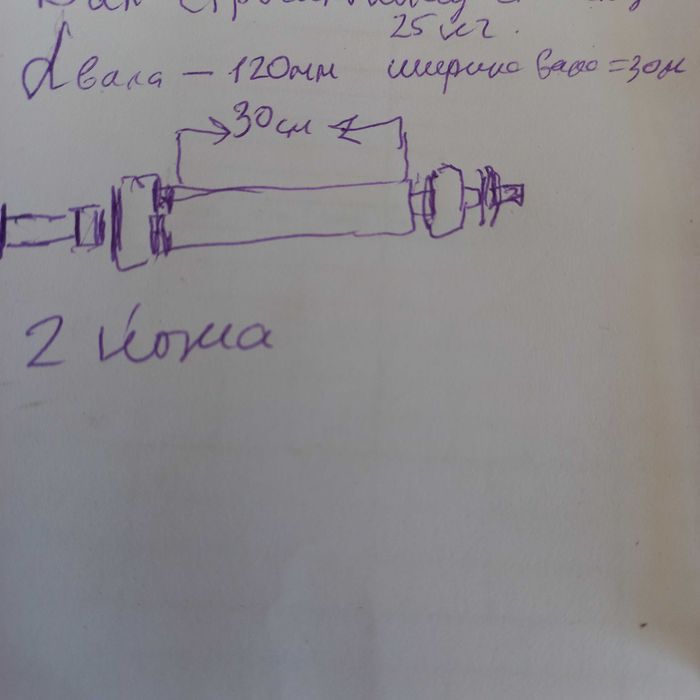 Вал
25 кг.
d вала – 120мм ширина вала = 30м
30см
2 ножа